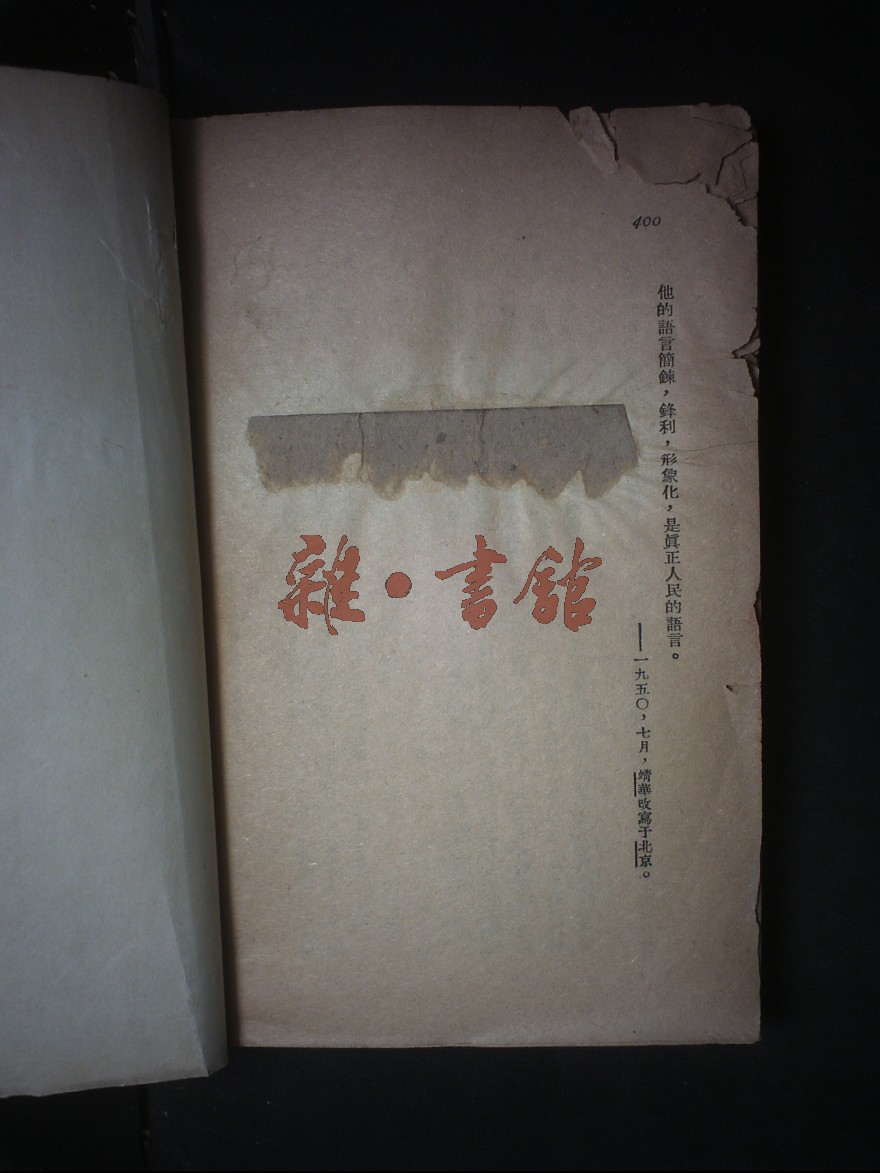 400
他的語言簡鍊，鋒利，形象化，是眞正人民的語言。
——一九五〇，七月，靖華改寫于北京。
雜·書館